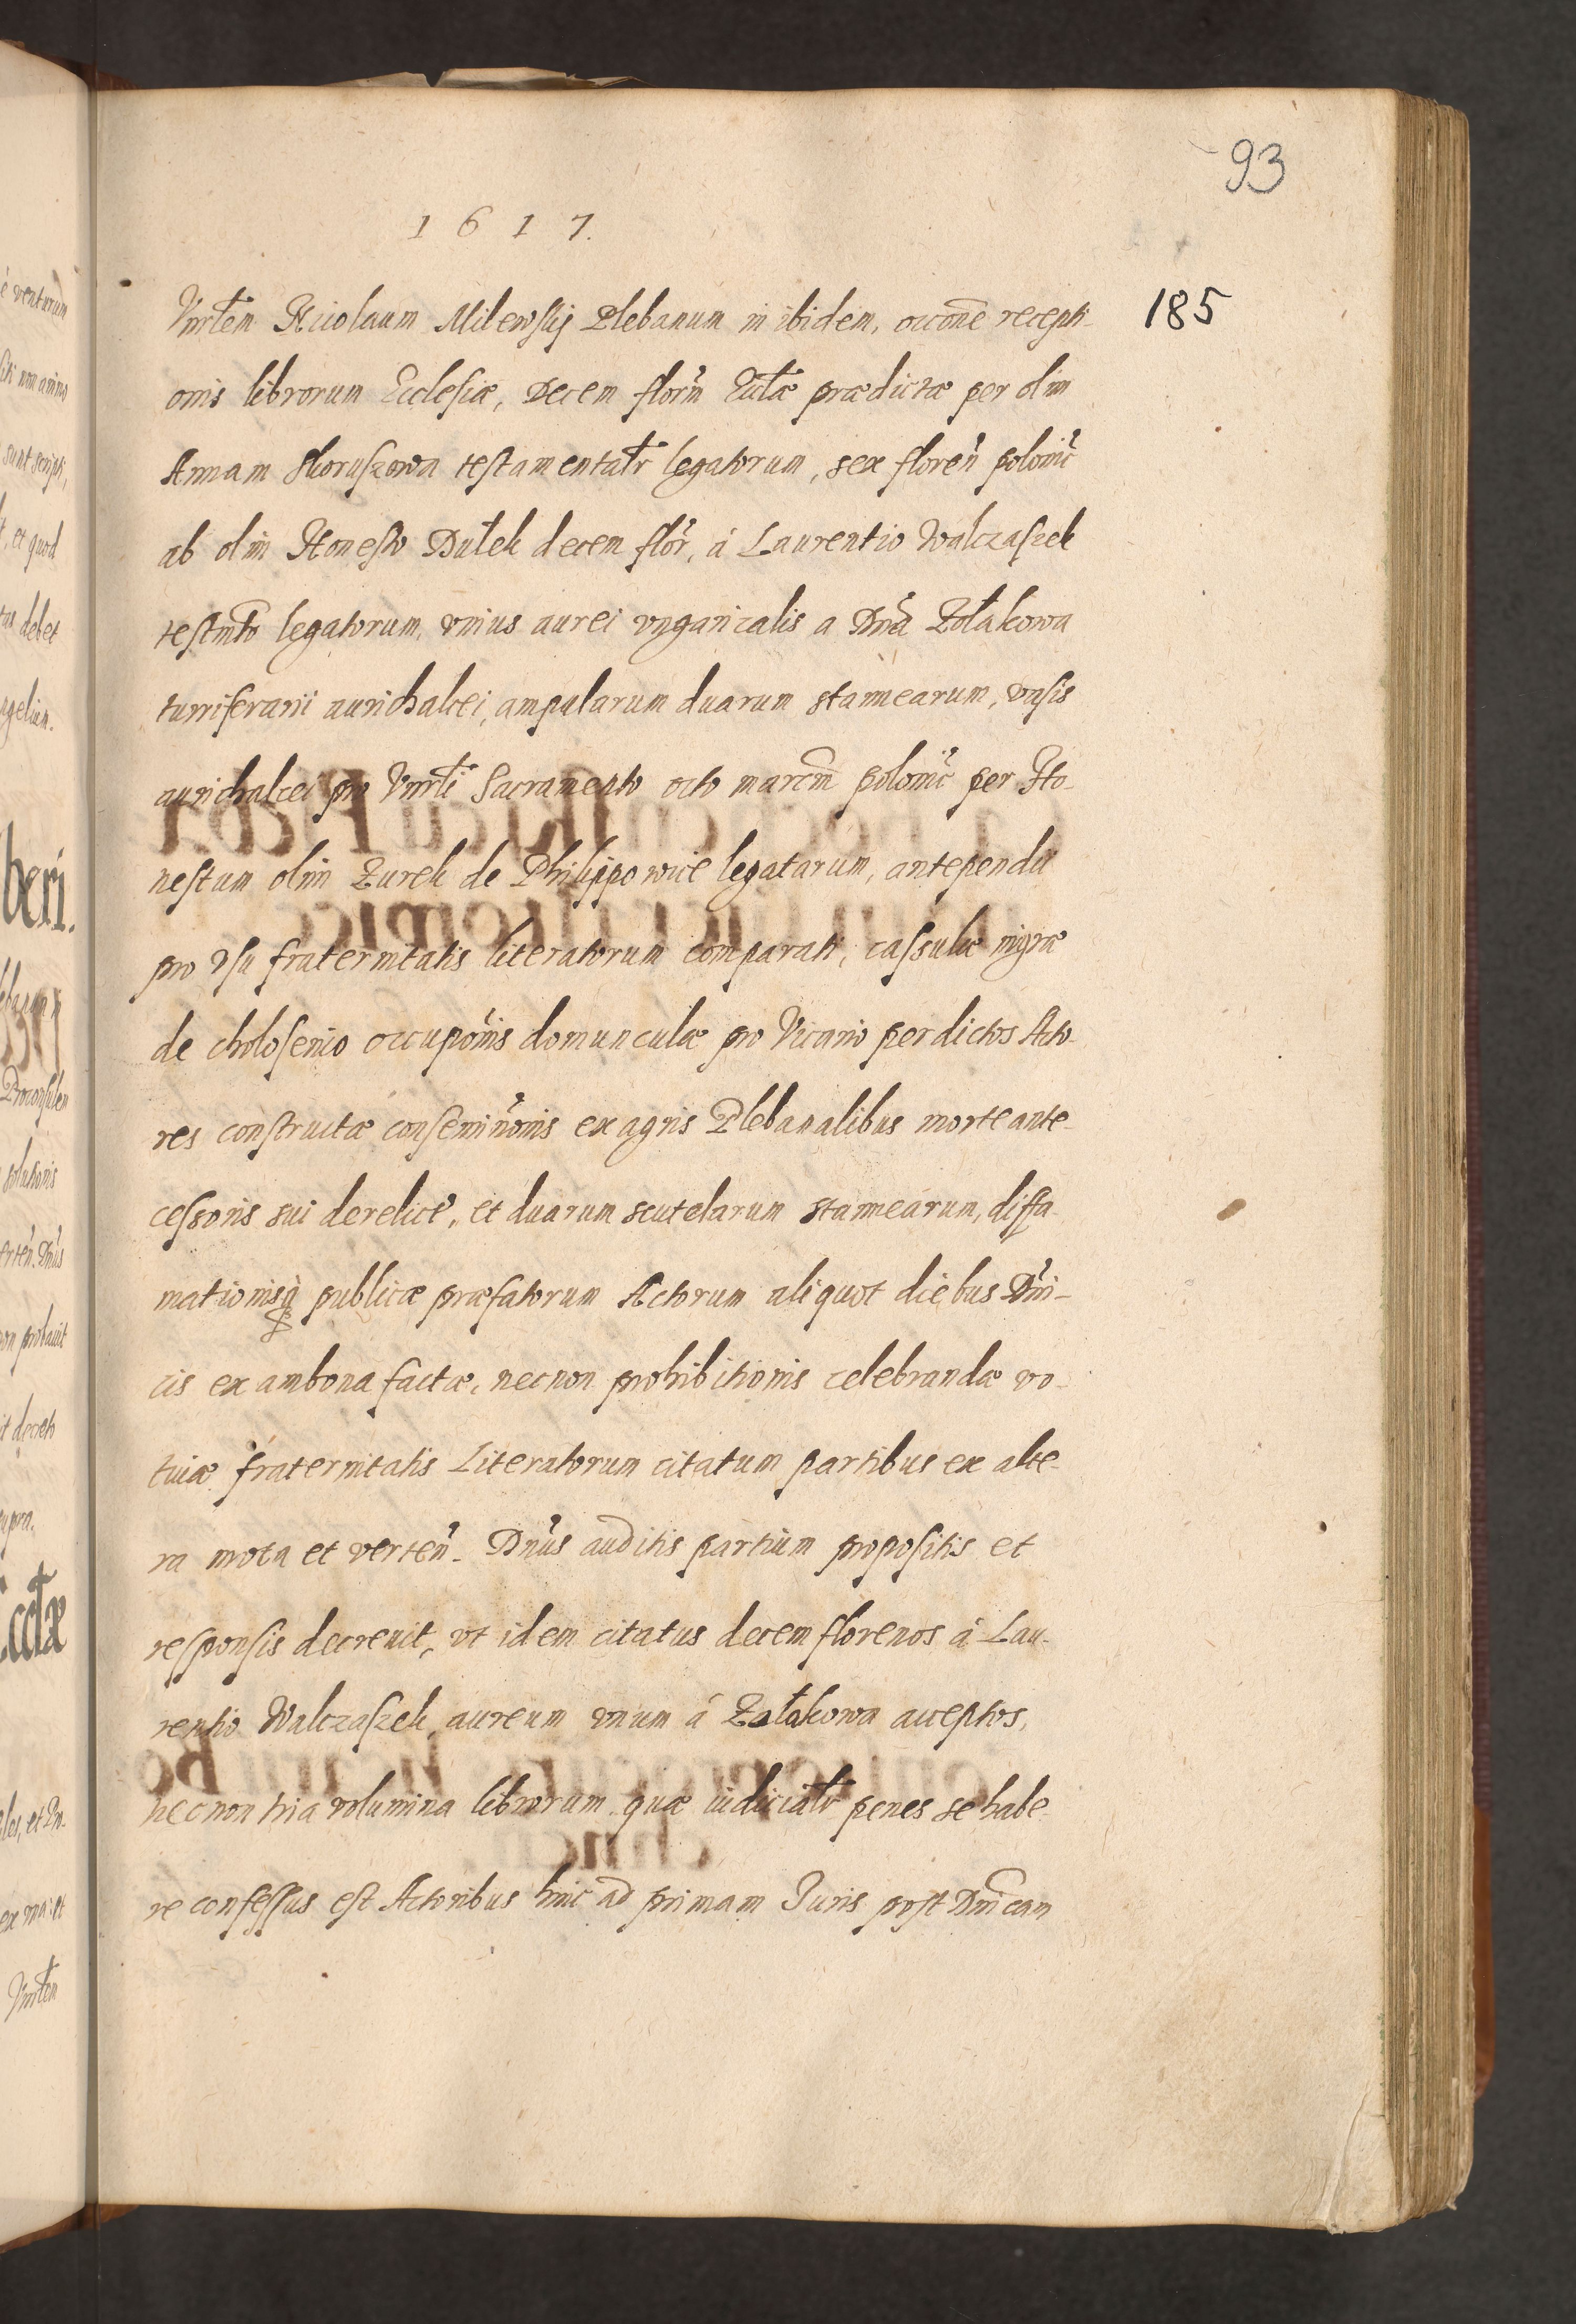 93
1617.
185
Vnrłem Nicolaum Milewskÿ Plebanum in ibidem, occone recepti-
onis librorum Ecclesiæ, Decem florm Ecclæ prædictæ per olim
Annam Skoruszowa testamentałr legatorum, sex floren polonic
ab olim Honesto Dutek decem flor, á Laurentio Walczaszek
testmto legatorum, vnius aurei vngaricalis a Dna Zołakowa
turriferarii aurichalcei, ampularum duarum stannearum, vasis
aurichalcei pro Vnrłi Sacramento octo marcm polonic per Ho-
nestum olim Zurek de Philippowice legatarum, antependii
pro vsu fraternitatis literatorum comparati, cassulæ nigræ
de choloserico occuponis domunculæ pro Vicario per dictos Acto-
res constructæ conseminonis ex agris Plebanalibus morte ante-
cessoris sui derelicte, et duarum scutelarum stannearum, diffa-
mationisq publicæ præfatorum Actorum aliquot diebus Dni-
cis ex ambona factæ, necnon prohibitionis celebrandæ vo-
tiuæ fraternitatis Literatorum citatum partibus ex alte-
ra mota et verten. Dnus auditis partium propositis et
responsis decreuit, vt idem citatus decem florenos á Lau-
rentio Walczaszek, aureum vnum á Załakowa acceptos,
necnon tria volumina librorum quæ iudiciałr penes se habe-
re confessus est Actoribus hinc ad primam Juris post Dnicam